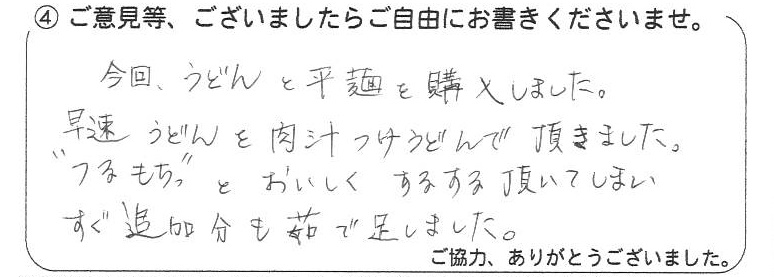 ④ ご意見等、ございましたらご自由にお書きくださいませ。
今回、うどんと平麺を購入しました。
早速 うどんを肉汁つけうどんで 頂きました。
"つるもちっ"と おいしく するする頂いてしまい
すぐ追加分も茹で足しました。
ご協力、ありがとうございました。